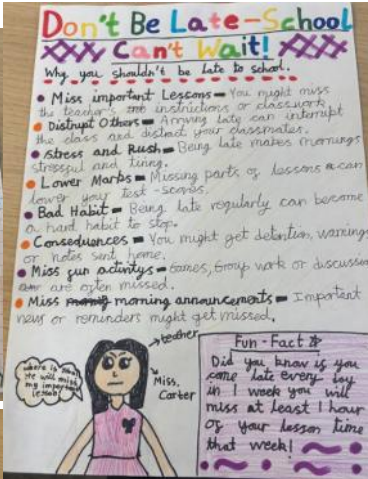 Don't Be Late-School
Can't Wait!
Why you shouldn't be late to school.
Miss important Lessons - You might miss
the teacher's instructions or classwork.
Distrupt Others - Arriving late can interrupt
the class and distract your classmates.
Stress and Rush - Being late makes mornings
stressful and tiring.
Lower Marks - Missing parts of lessons can
lower your test-scores.
Bad Habit - Being late regularly can become
a hard habit to stop.
Consequences - You might get detention, warnings
or notes sent home.
Miss fun activitys - Games, Group work or discussion
are often missed.
Miss morning announcements - Important
news or reminders might get missed.
teacher
Miss.
Carter
where is
He will miss
my important
lesson!
Fun-Fact
Did you know is you
come late every day
in 1 week you will
miss at least 1 hour
of your lesson time
that week!